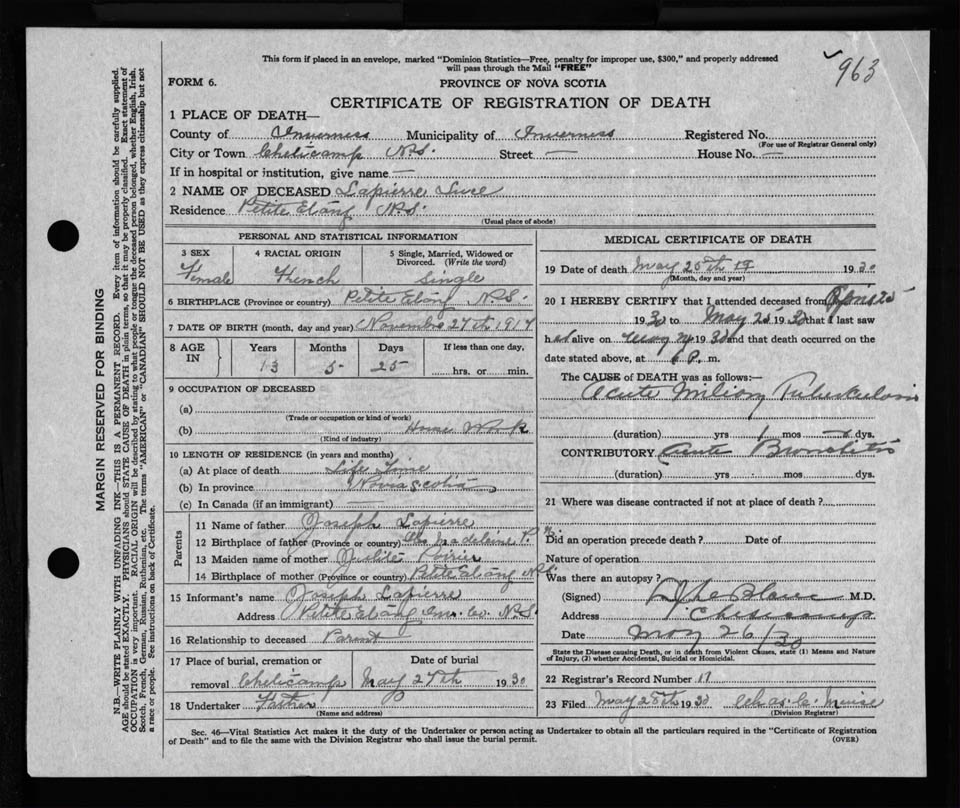 This form if placed in an envelope, marked "Dominion Statistics—Free, penalty for improper use, $300," and properly addressed
will pass through the Mail "FREE"
963
FORM 6.
PROVINCE OF NOVA SCOTIA
CERTIFICATE OF REGISTRATION OF DEATH
1 PLACE OF DEATH—
County of Inverness Municipality of Inverness Registered No.
(For use of Registrar General only)
City or Town Cheticamp N.S. Street — House No. —
If in hospital or institution, give name —
2 NAME OF DECEASED Lapierre Luce
Residence Petite Etang N.S.
(Usual place of abode)
PERSONAL AND STATISTICAL INFORMATION
3 SEX 4 RACIAL ORIGIN 5 Single, Married, Widowed or
Divorced. (Write the word)
Female French Single
6 BIRTHPLACE (Province or country) Petite Etang N.S.
7 DATE OF BIRTH (month, day and year) November 27th 1917
8 AGE IN Years Months Days If less than one day,
13 5 25 hrs. or min.
9 OCCUPATION OF DECEASED
(a)
(Trade or occupation or kind of work)
(b) Home Work
(Kind of industry)
10 LENGTH OF RESIDENCE (in years and months)
(a) At place of death Life Time
(b) In province Nova Scotia
(c) In Canada (if an immigrant)
Parents
11 Name of father Joseph Lapierre
12 Birthplace of father (Province or country) Madeleine P.
13 Maiden name of mother Poirier
14 Birthplace of mother (Province or country) Petite Etang N.S.
15 Informant's name Joseph Lapierre
Address Petite Etang Inv. Co. N.S.
16 Relationship to deceased Parent
17 Place of burial, cremation or Date of burial
removal Cheticamp May 27th 1930
18 Undertaker Father
(Name and address)
MEDICAL CERTIFICATE OF DEATH
19 Date of death May 25th 19 1930
(Month, day and year)
20 I HEREBY CERTIFY that I attended deceased from April 25
1930 to May 25 1930 that I last saw
her alive on May 24 1930 and that death occurred on the
date stated above, at 6 P. m.
The CAUSE of DEATH was as follows:—
Acute Miliary Tuberculosis
(duration) yrs 1 mos dys.
CONTRIBUTORY Acute Bronchitis
(duration) yrs mos dys.
21 Where was disease contracted if not at place of death?
Did an operation precede death? Date of
Nature of operation
Was there an autopsy?
(Signed) LeBlanc M.D.
Address Cheticamp
Date May 26/30
State the Disease causing Death, or in death from Violent Causes, state (1) Means and Nature
of Injury, (2) whether Accidental, Suicidal or Homicidal.
22 Registrar's Record Number 17
23 Filed May 28th 1930 Chas. C. Meuse
(Division Registrar)
Sec. 46—Vital Statistics Act makes it the duty of the Undertaker or person acting as Undertaker to obtain all the particulars required in the "Certificate of Registration
of Death" and to file the same with the Division Registrar who shall issue the burial permit.
(OVER)
MARGIN RESERVED FOR BINDING
N.B.—WRITE PLAINLY WITH UNFADING INK—THIS IS A PERMANENT RECORD. Every item of information should be carefully supplied.
AGE should be stated EXACTLY. PHYSICIANS should STATE CAUSE OF DEATH in plain terms, so that it may be properly classified. Exact statement of
OCCUPATION is very important. RACIAL ORIGIN will be described by stating to what people or tongue the deceased person belonged, whether English, Irish,
Scotch, French, German, Russian, Ruthenian, etc. The terms "AMERICAN" or "CANADIAN" SHOULD NOT BE USED as they express citizenship but not
a race or people. See instructions on back of Certificate.